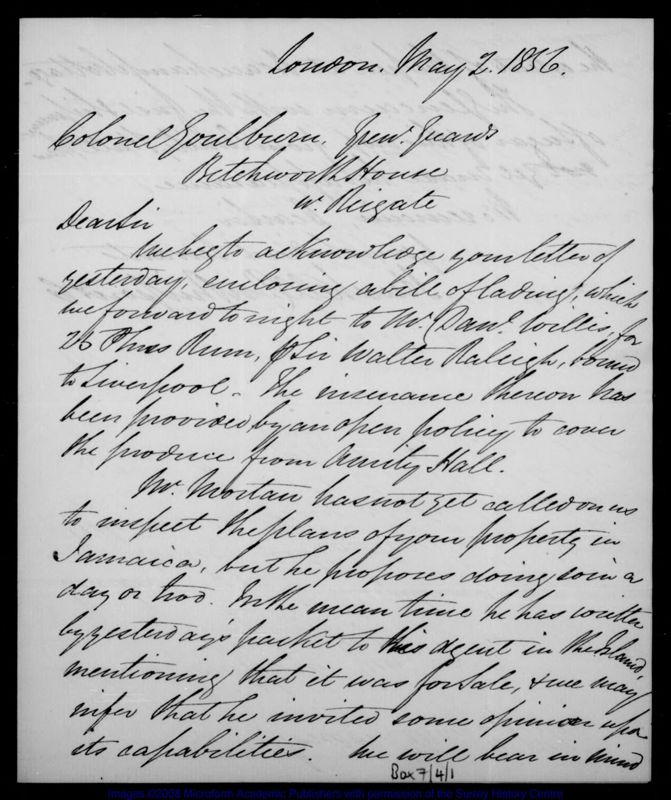 London. May 2. 1856.
Colonel Goulburn, Gren.r Guards
Betchworth House
nr Reigate
Dear Sir
We beg to acknowledge your letter of
yesterday, enclosing a bill of lading, which
we forward to night to Mr. Danl. Willis, for
26 Phns Rum, p Sir Walter Raleigh, bound
to Liverpool. The insurance thereon has
been provided by an open policy to cover
the produce from Amity Hall.
Mr. Mortan has not yet called on us
to inspect the plans of your property in
Jamaica, but he proposes doing so in a
day or two. In the mean time he has written
by yesterday's packet to his agent in the Island,
mentioning that it was for sale, & we may
infer that he invited some opinion upon
its capabilities. We will bear in mind
Box 7/4/1
Images ©2008 Microform Academic Publishers with permission of the Surrey History Centre